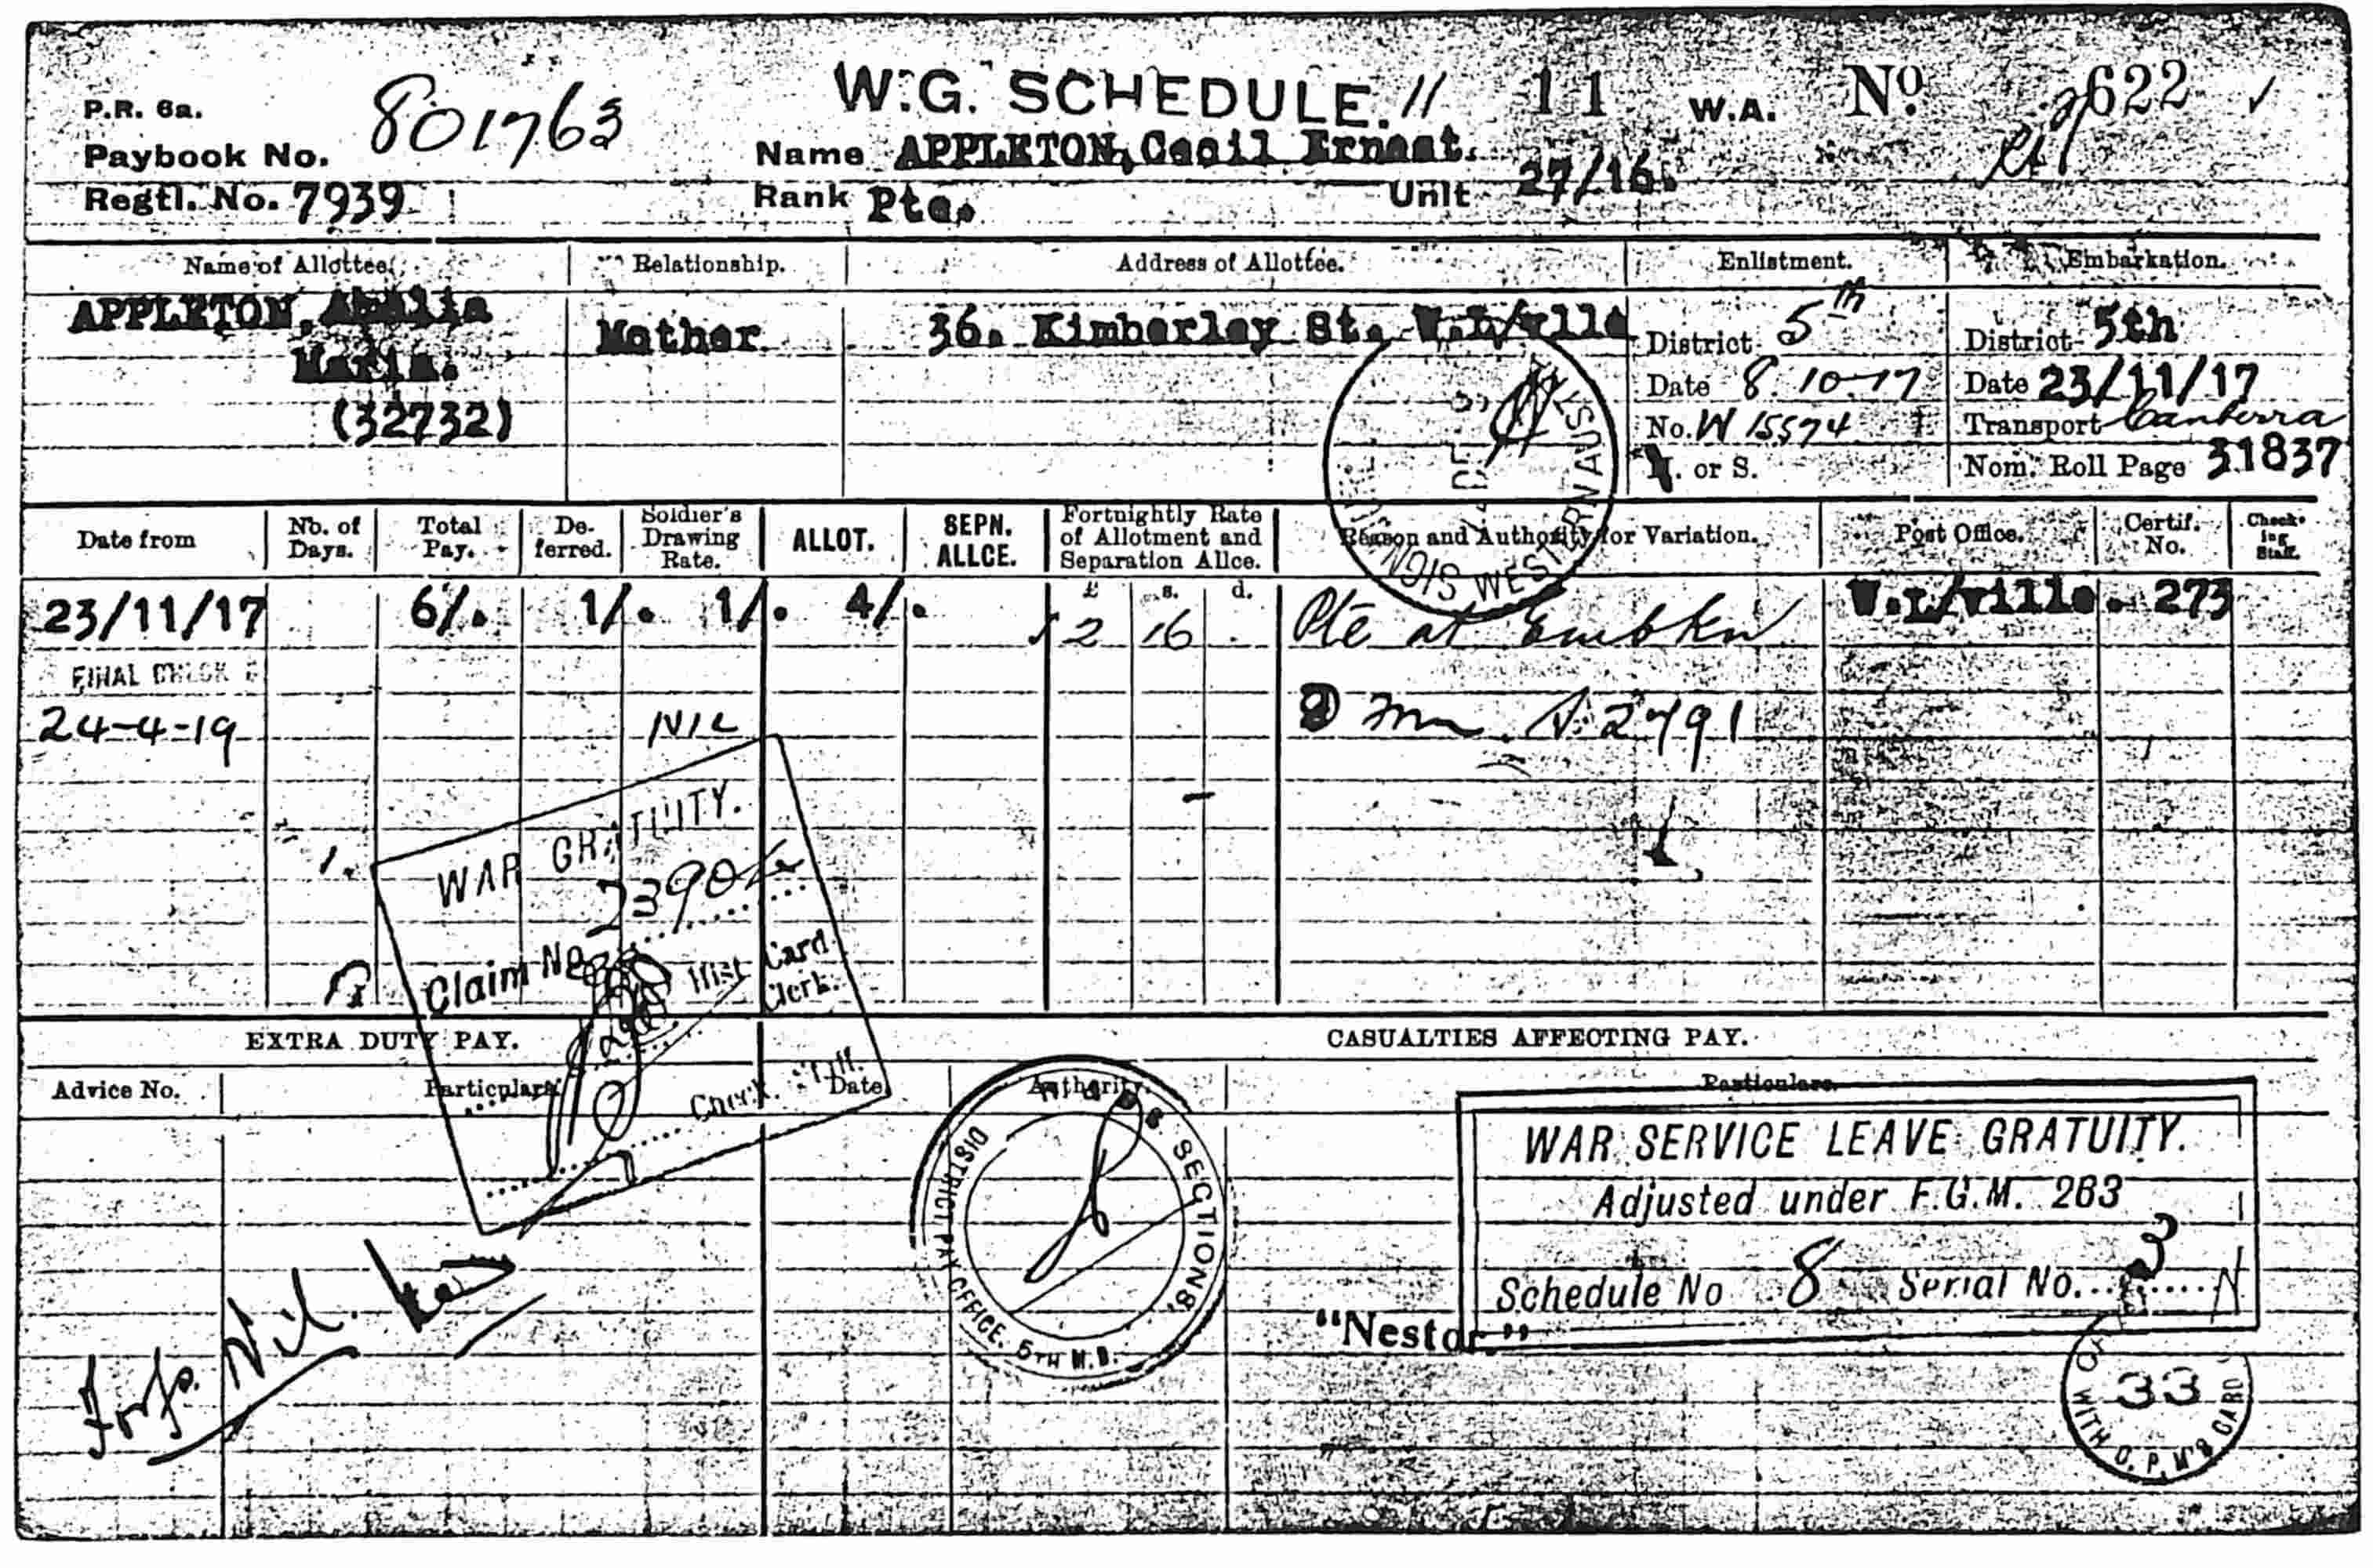 W.G. SCHEDULE. // 11 W.A. No. 2622
P.R. 6a.
Paybook No. 801763
Name APPLETON, Cecil Ernest.
Regtl. No. 7939
Rank Pte.
Unit 27/16.
Name of Allottee. Relationship. Address of Allottee. Enlistment. Embarkation.
APPLETON, Maria. Mother 36. Kimberley St. W.L/ville
(32732)
District 5th
Date 8.10.17
No. W 15574
M. or S.
District 5th
Date 23/11/17
Transport Canberra
Nom. Roll Page 31837
Date from No. of Days. Total Pay. De-ferred. Soldier's Drawing Rate. ALLOT. SEPN. ALLCE. Fortnightly Rate of Allotment and Separation Allce. Reason and Authority for Variation. Post Office. Certif. No. Check-ing Staff.
£ s. d.
23/11/17 6/. 1/. 1/. 4/. 2 16 . Pte at Embkn W.L/ville. 273
FINAL CHECK
24-4-19 NIL 2791
WAR GRATUITY.
Claim No
Hist Card Clerk.
Check.
WESTERN AUSTRALIA
EXTRA DUTY PAY. CASUALTIES AFFECTING PAY.
Advice No. Particulars. Date Authority. Particulars.
DISTRICT PAY OFFICE. 5TH M.D.
SECTIONS,
WAR SERVICE LEAVE GRATUITY.
Adjusted under F.G.M. 263
Schedule No 8 Serial No. 3
"Nestor."
Nil.
33
WITH O.P.M'S CARD